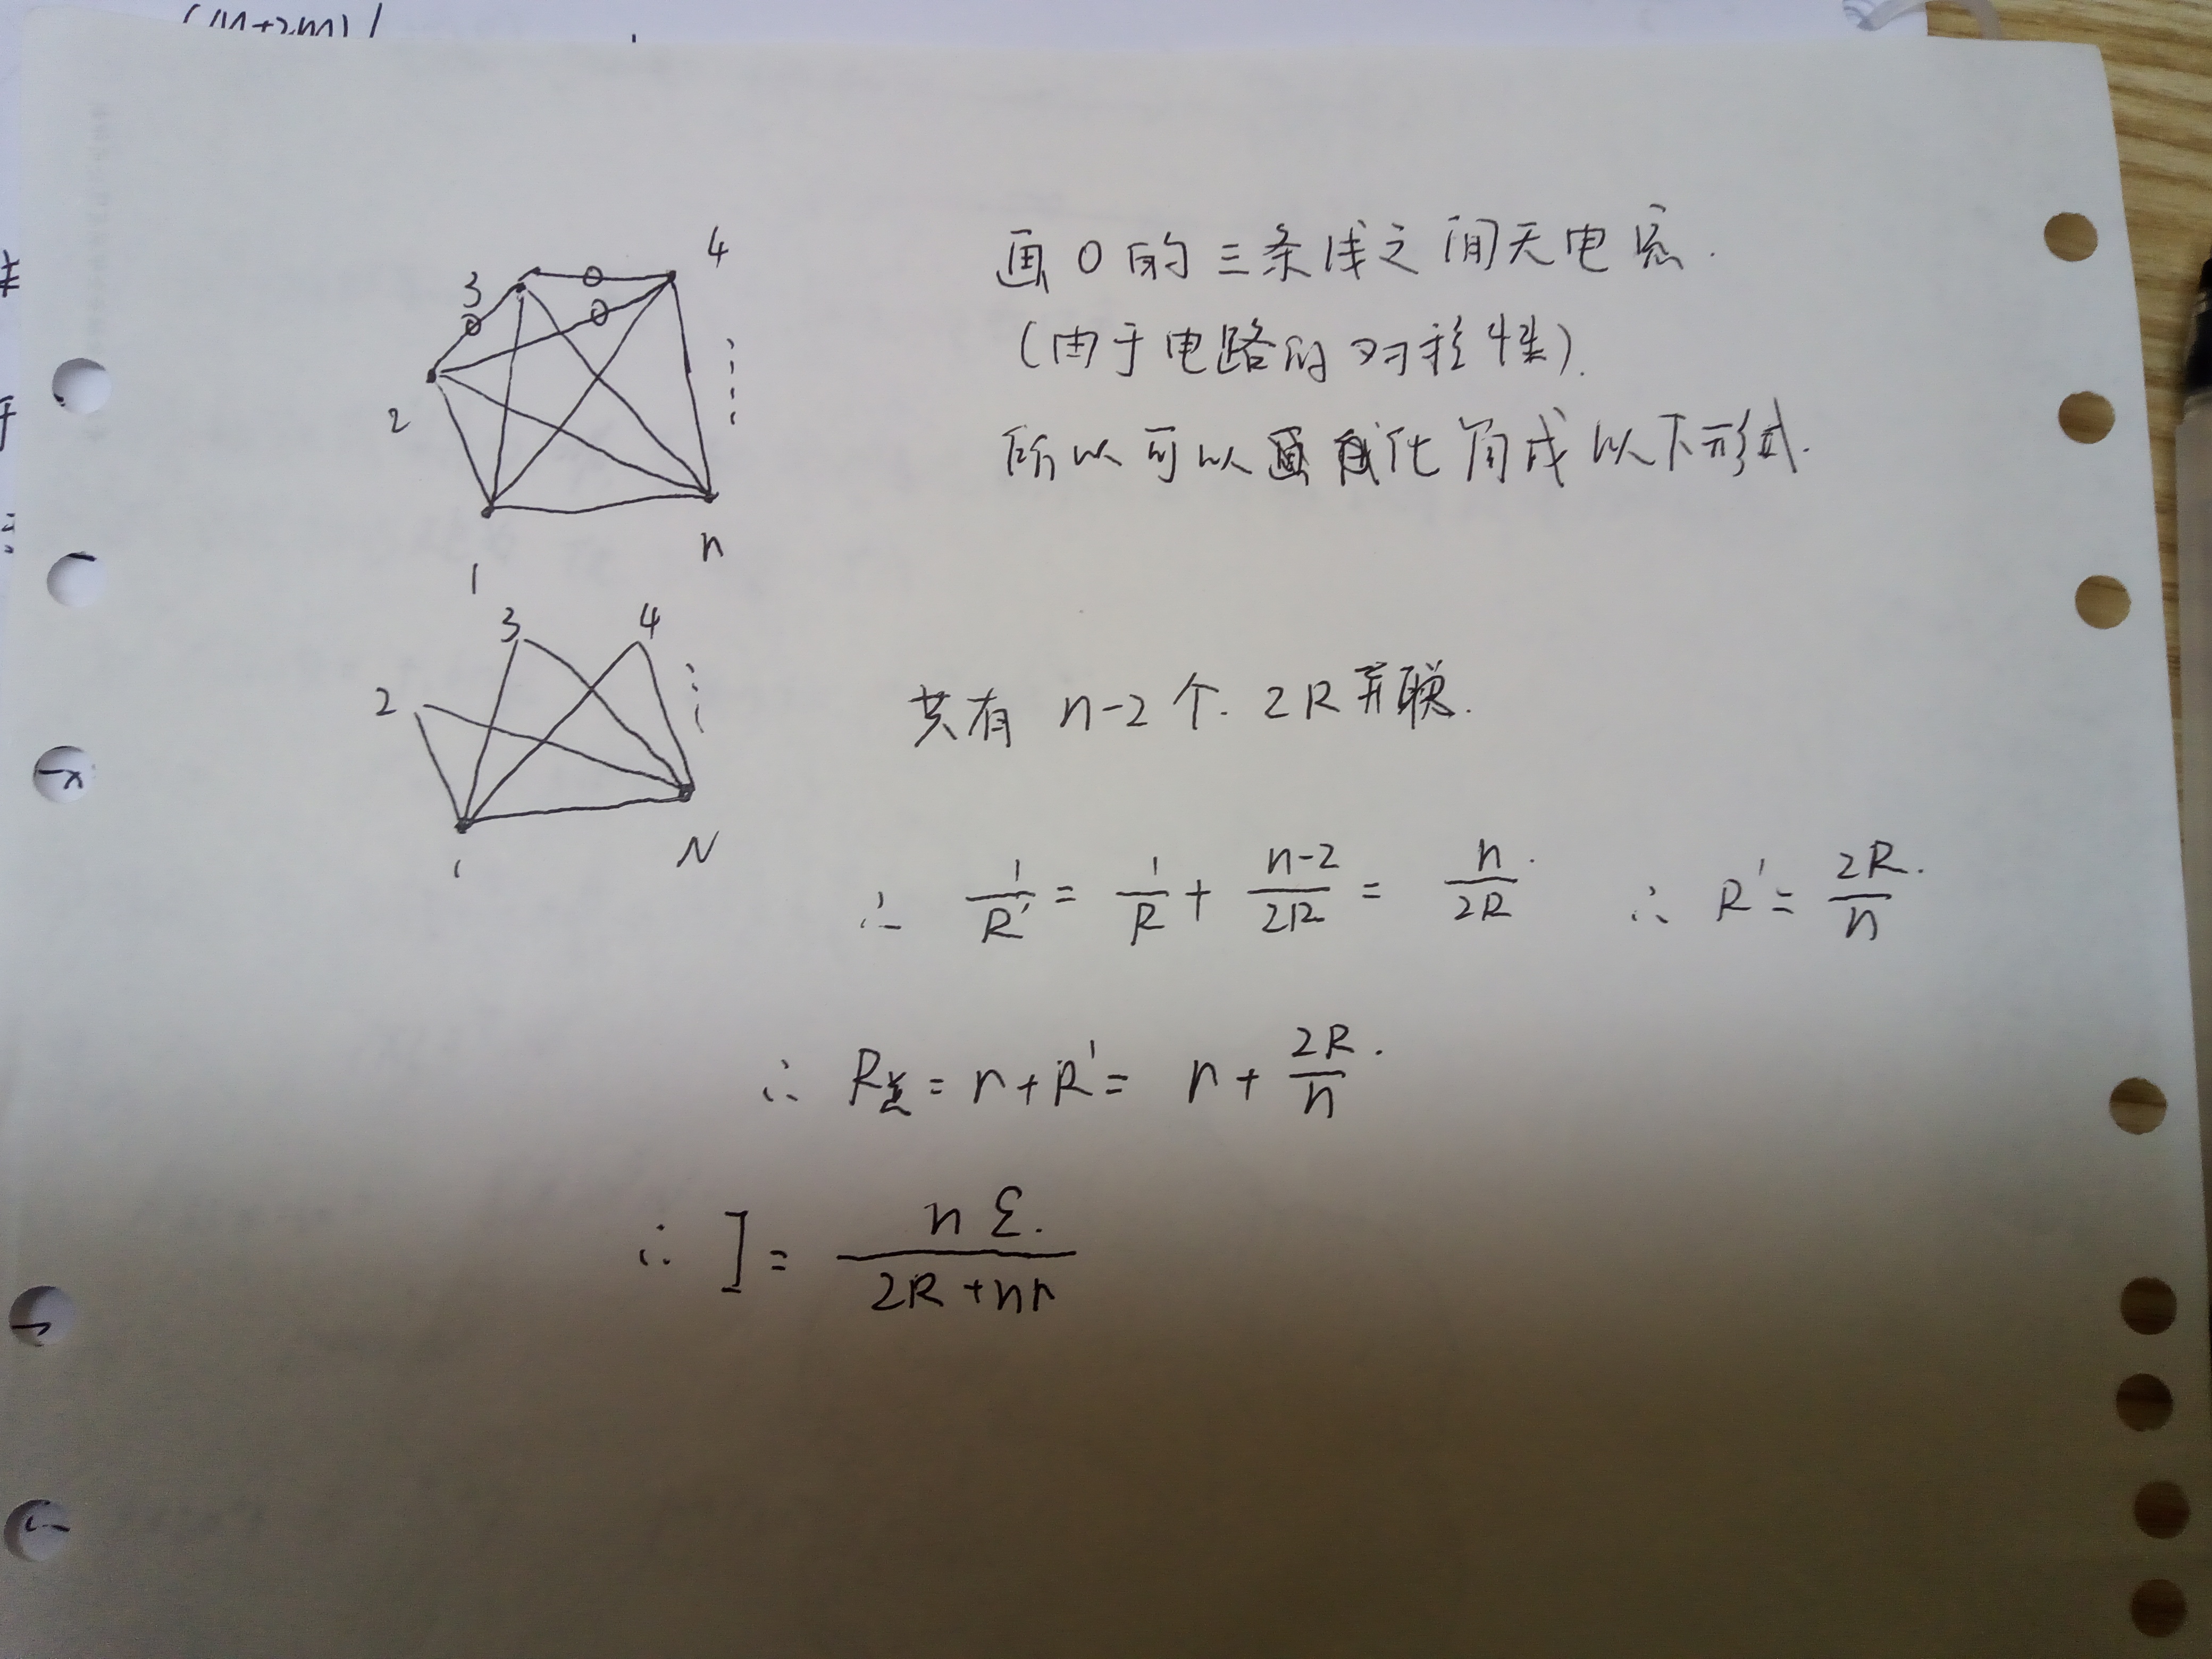 (M+2m)
3
4
2
1
n
画0的三条线之间无电流.
(由于电路的对称性).
所以可以化简成以下形式.
3
4
2
1
N
共有 n-2个 2R并联.
∴ 1/R' = 1/R + (n-2)/2R = n/2R. ∴ R' = 2R/n.
∴ R总 = r+R' = r + 2R/n.
∴ I = nε. / (2R+nr)